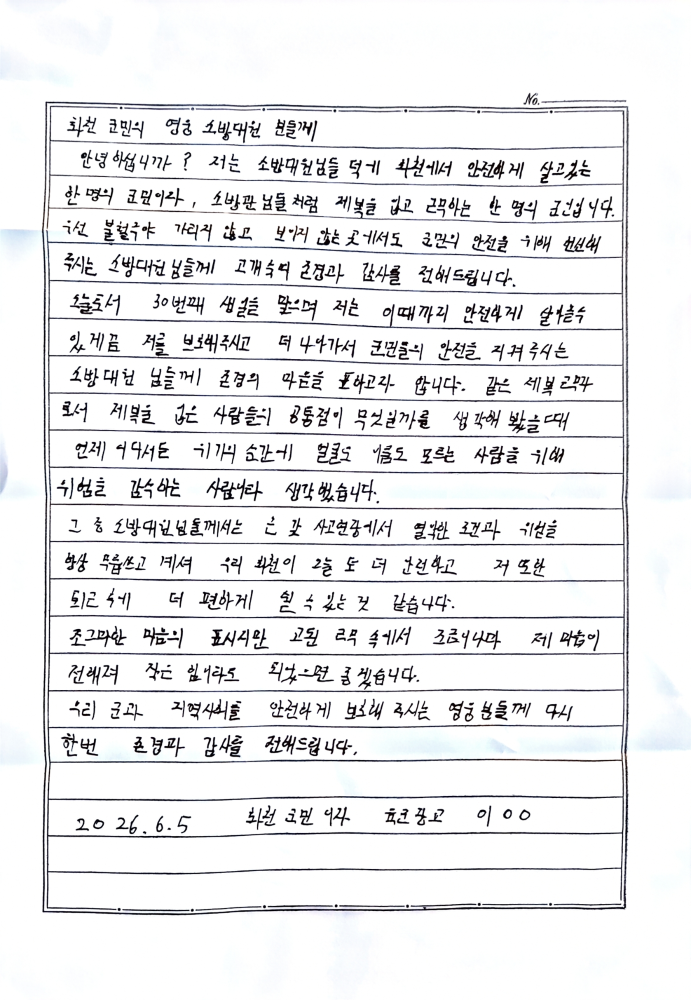 No.
화천 군민의 영웅 소방대원 분들께
안녕하십니까? 저는 소방대원님들 덕에 화천에서 안전하게 살고있는
한 명의 군민이자, 소방관님들처럼 제복을 입고 근무하는 한 명의 군인입니다.
우선 불철주야 가리지 않고 보이지 않는 곳에서도 군민의 안전을 위해 헌신해
주시는 소방대원님들께 고개숙여 존경과 감사를 전해드립니다.
오늘로서 30번째 생일을 맞으며 저는 이때까지 안전하게 살아올수
있게끔 저를 보호해주시고 더 나아가서 군민들의 안전을 지켜주시는
소방대원 님들께 존경의 마음을 표하고자 합니다. 같은 제복 근무자
로서 제복을 입은 사람들의 공통점이 무엇일까를 생각해 봤을때
언제 어디서든 위기의 순간에 얼굴도 이름도 모르는 사람을 위해
위험을 감수하는 사람이라 생각했습니다.
그 중 소방대원님들께서는 온 갖 사고현장에서 열악한 조건과 위험을
항상 무릅쓰고 계셔 우리 화천이 오늘 도 더 안전하고 저 또한
퇴근 후에 더 편하게 쉴 수 있는 것 같습니다.
조그마한 마음의 표시지만 고된 근무 속에서 조금이나마 제 마음이
전해져 작은 힘이라도 되었으면 좋겠습니다.
우리 군과 지역사회를 안전하게 보호해 주시는 영웅분들께 다시
한번 존경과 감사를 전해드립니다.
2026.6.5 화천 군민 이자 육군중고 이00